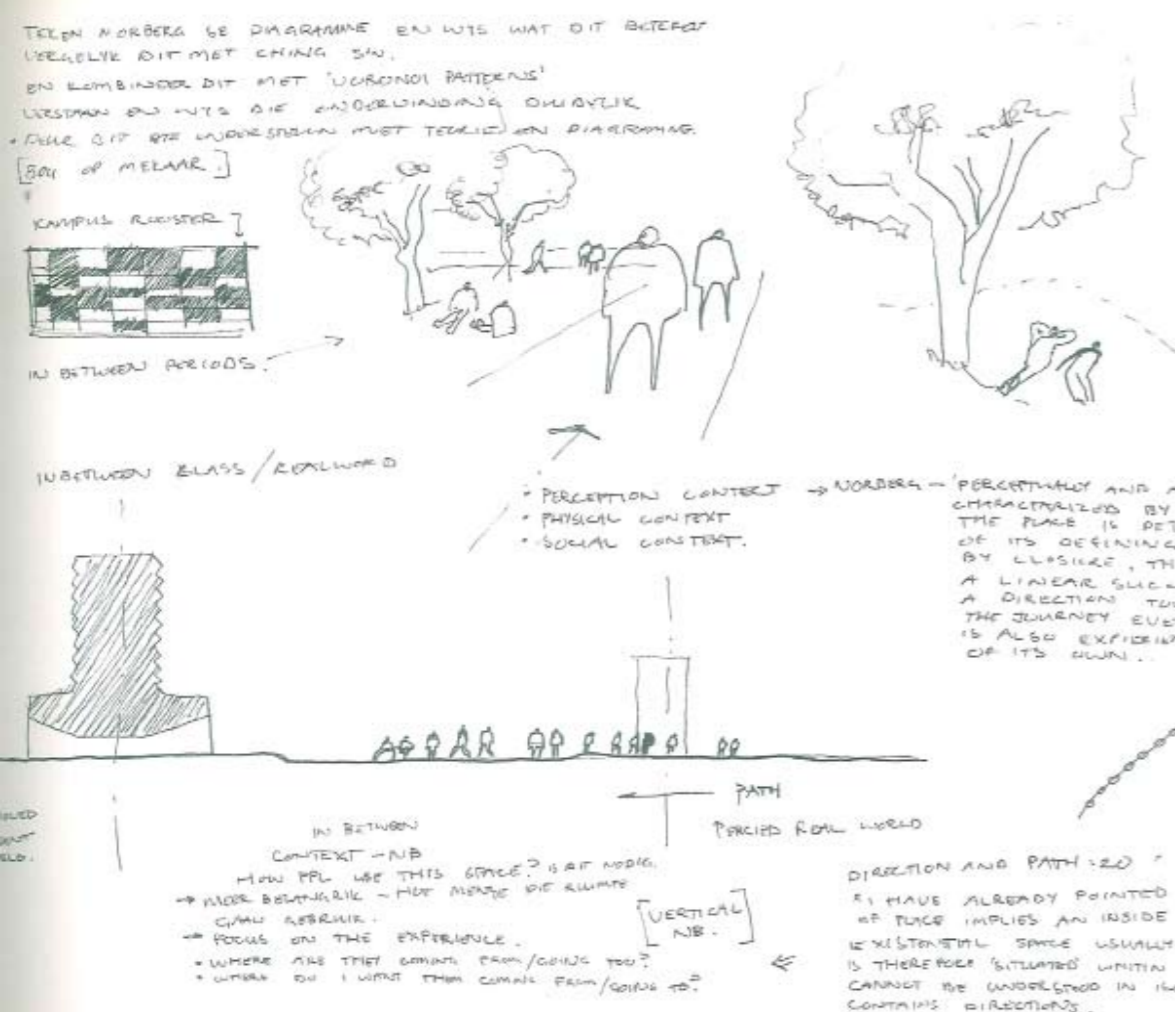 TEKEN NORBERG SE DIAGRAMME EN WYS WAT DIT BETEKEN
VERGELYK DIT MET CHING SN.
EN KOMBINEER DIT MET 'VORONOI PATTERNS'
VERSTAAN EN WYS DIE ONDERVINDING DUIDELIK
• DEUR DIT TE ONDERSTEUN MET TEORIE EN DIAGRAMME.
[BOU OP MEKAAR.]
KAMPUS ROOSTER
IN BETWEEN PERIODS.
INBETWEEN CLASS/REALWORLD
• PERCEPTION CONTEXT → NORBERG - 'PERCEPTUALLY AND A
• PHYSICAL CONTEXT
• SOCIAL CONTEXT.
CHARACTARIZED BY
THE PLACE IS DET
OF ITS DEFINING
BY CLOSURE, TH
A LINEAR SUCC
A DIRECTION TO
THE JOURNEY EVE
IS ALSO EXPIRIEN
OF ITS OWN.
PATH
REAL WORLD
IN BETWEEN
CONTEXT - NB
HOW PPL USE THIS SPACE? IS DIT NODIG.
→ MEER BELANGRIK - HOE MENSE DIE RUIMTE
GAAN GEBRUIK.
→ FOCUS ON THE EXPERIENCE.
• WHERE ARE THEY COMING FROM/GOING TOO?
• WHERE DO I WANT THEM COMING FROM/GOING TO?
[VERTICAL
NB.]
DIRECTION AND PATH: 20
"I HAVE ALREADY POINTED
OF PLACE IMPLIES AN INSIDE
EXISTENTIAL SPACE USUALLY
IS THEREFORE 'SITUATED' WITHIN
CANNOT BE UNDERSTOOD IN
CONTAINS DIRECTIONS.